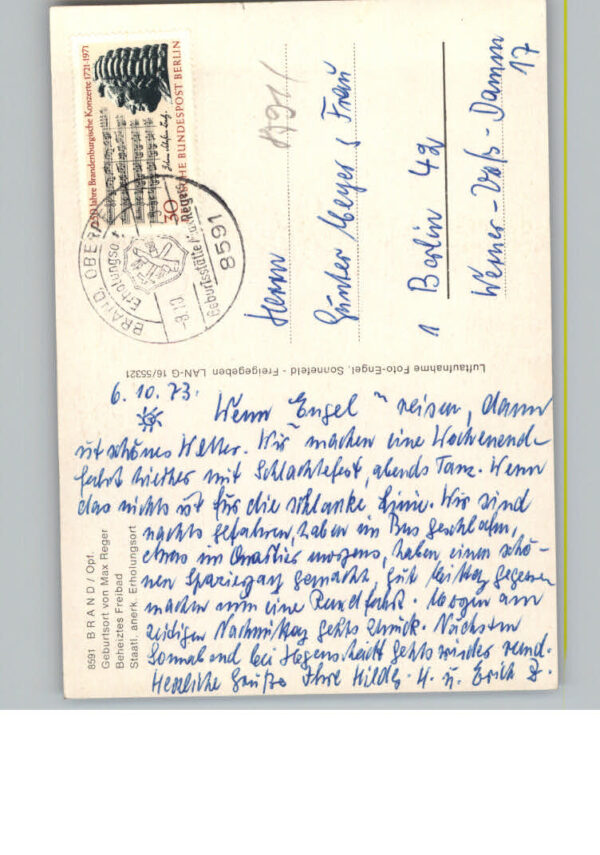 250 Jahre Brandenburgische Konzerte 1721-1971
DEUTSCHE BUNDESPOST BERLIN
30
BRAND, OBERPF
Erholungsort
Geburtsstätte Max Regers
8591
-8.10
Herrn
Günter Meyer & Frau
1 Berlin 42
Werner-Voß-Damm
17
Luftaufnahme Foto-Engel, Sonnefeld - Freigegeben LAN-G 16/55321
6.10.73.
Wenn "Engel" reisen, dann
ist schönes Wetter. Wir machen eine Wochenend-
fahrt hierher mit Schlachtefest, abends Tanz. Wenn
das nichts ist für die schlanke Linie. Wir sind
nachts gefahren, haben im Bus geschlafen,
etwas im Quartier morgens, haben einen schö-
nen Spaziergang gemacht, gut Mittag gegessen
machen nun eine Rundfahrt. Morgen am
zeitigen Nachmittag gehts zurück. Nächsten
Sonnabend bei Hegenscheidt gehts wieder rund.
Herzliche Grüße Ihre Hildg. H. u. Erich Z.
8591 BRAND / Opf.
Geburtsort von Max Reger
Beheiztes Freibad
Staatl. anerk. Erholungsort